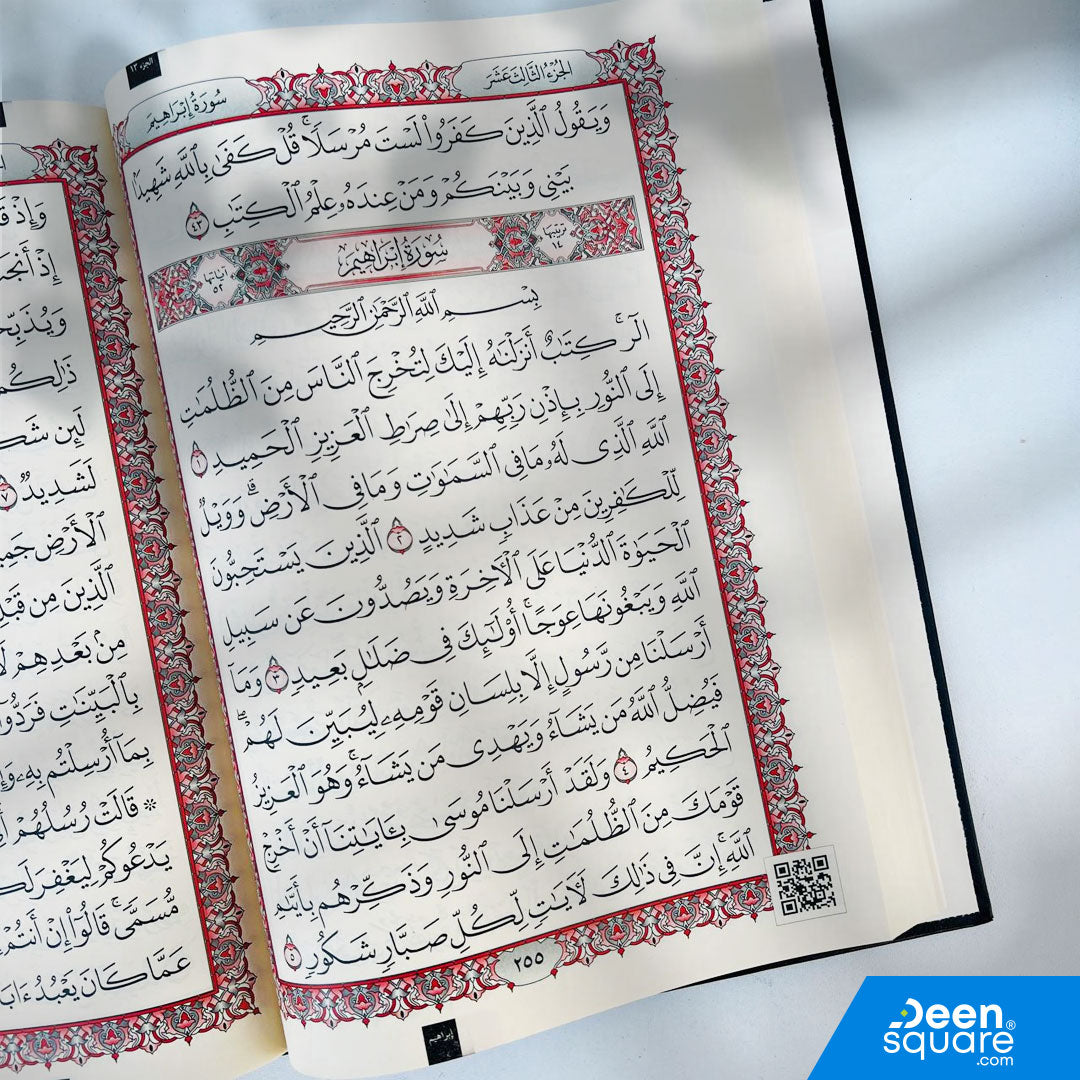 الجزء ١٣
الجُزْءُ الثَّالِثَ عَشَرَ
سُورَةُ إِبْرَاهِيمَ
وَيَقُولُ ٱلَّذِينَ كَفَرُوا۟ لَسْتَ مُرْسَلًا ۚ قُلْ كَفَىٰ بِٱللَّهِ شَهِيدًۢا
بَيْنِى وَبَيْنَكُمْ وَمَنْ عِندَهُۥ عِلْمُ ٱلْكِتَـٰبِ ٤٣
تَرْتِيبُهَا ١٤
سُورَةُ إِبْرَاهِيمَ
آيَاتُهَا ٥٢
بِسْمِ ٱللَّهِ ٱلرَّحْمَـٰنِ ٱلرَّحِيمِ
الٓر ۚ كِتَـٰبٌ أَنزَلْنَـٰهُ إِلَيْكَ لِتُخْرِجَ ٱلنَّاسَ مِنَ ٱلظُّلُمَـٰتِ
إِلَى ٱلنُّورِ بِإِذْنِ رَبِّهِمْ إِلَىٰ صِرَٰطِ ٱلْعَزِيزِ ٱلْحَمِيدِ ١
ٱللَّهِ ٱلَّذِى لَهُۥ مَا فِى ٱلسَّمَـٰوَٰتِ وَمَا فِى ٱلْأَرْضِ ۗ وَوَيْلٌ
لِّلْكَـٰفِرِينَ مِنْ عَذَابٍ شَدِيدٍ ٢ ٱلَّذِينَ يَسْتَحِبُّونَ
ٱلْحَيَوٰةَ ٱلدُّنْيَا عَلَى ٱلْـَٔاخِرَةِ وَيَصُدُّونَ عَن سَبِيلِ
ٱللَّهِ وَيَبْغُونَهَا عِوَجًا ۚ أُو۟لَـٰٓئِكَ فِى ضَلَـٰلٍۭ بَعِيدٍ ٣ وَمَآ
أَرْسَلْنَا مِن رَّسُولٍ إِلَّا بِلِسَانِ قَوْمِهِۦ لِيُبَيِّنَ لَهُمْ ۖ
فَيُضِلُّ ٱللَّهُ مَن يَشَآءُ وَيَهْدِى مَن يَشَآءُ ۚ وَهُوَ ٱلْعَزِيزُ
ٱلْحَكِيمُ ٤ وَلَقَدْ أَرْسَلْنَا مُوسَىٰ بِـَٔايَـٰتِنَآ أَنْ أَخْرِجْ
قَوْمَكَ مِنَ ٱلظُّلُمَـٰتِ إِلَى ٱلنُّورِ وَذَكِّرْهُم بِأَيَّىٰمِ
ٱللَّهِ ۚ إِنَّ فِى ذَٰلِكَ لَـَٔايَـٰتٍ لِّكُلِّ صَبَّارٍ شَكُورٍ ٥
٢٥٥
إبراهيم
إِذْ أَنجَ
وَيُذَبِّحُ
ذَٰلِكُم
لَئِن شَكَ
لَشَدِيدٌ ٧
ٱلْأَرْضِ جَمِي
ٱلَّذِينَ مِن قَبْلِ
مِنۢ بَعْدِهِمْ لَا
بِٱلْبَيِّنَـٰتِ فَرَدُّوٓا۟
بِمَآ أُرْسِلْتُم بِهِۦ وَإِ
۞ قَالَتْ رُسُلُهُمْ أَ
يَدْعُوكُمْ لِيَغْفِرَ لَكُ
مُّسَمًّى ۚ قَالُوٓا۟ إِنْ أَنتُمْ
عَمَّا كَانَ يَعْبُدُ ءَابَا
Deen®
square
.com